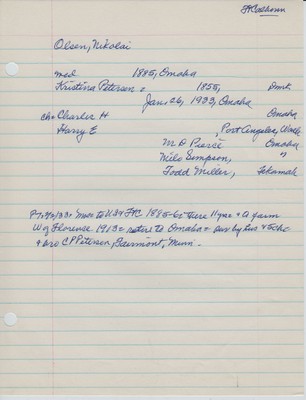 FtCalhoun
Olsen, Nikolai
med 1885, Omaha
Kristina Petersen 2 1855, Dmk.
Jan. 26, 1933, Omaha
ch= Charles H Omaha
Harry E , Port Angeles, Wash
M D Pierce Omaha
Niels Simpson, "
Todd Miller, Tekamah
P7: 2/2/33: Mov to USA & FtC 1885-6= there 11 yrs & a farm
W of Florence 1913= retire to Omaha= sur by hus & 5chc
& bro C P Petersen, Fairmont, Minn -